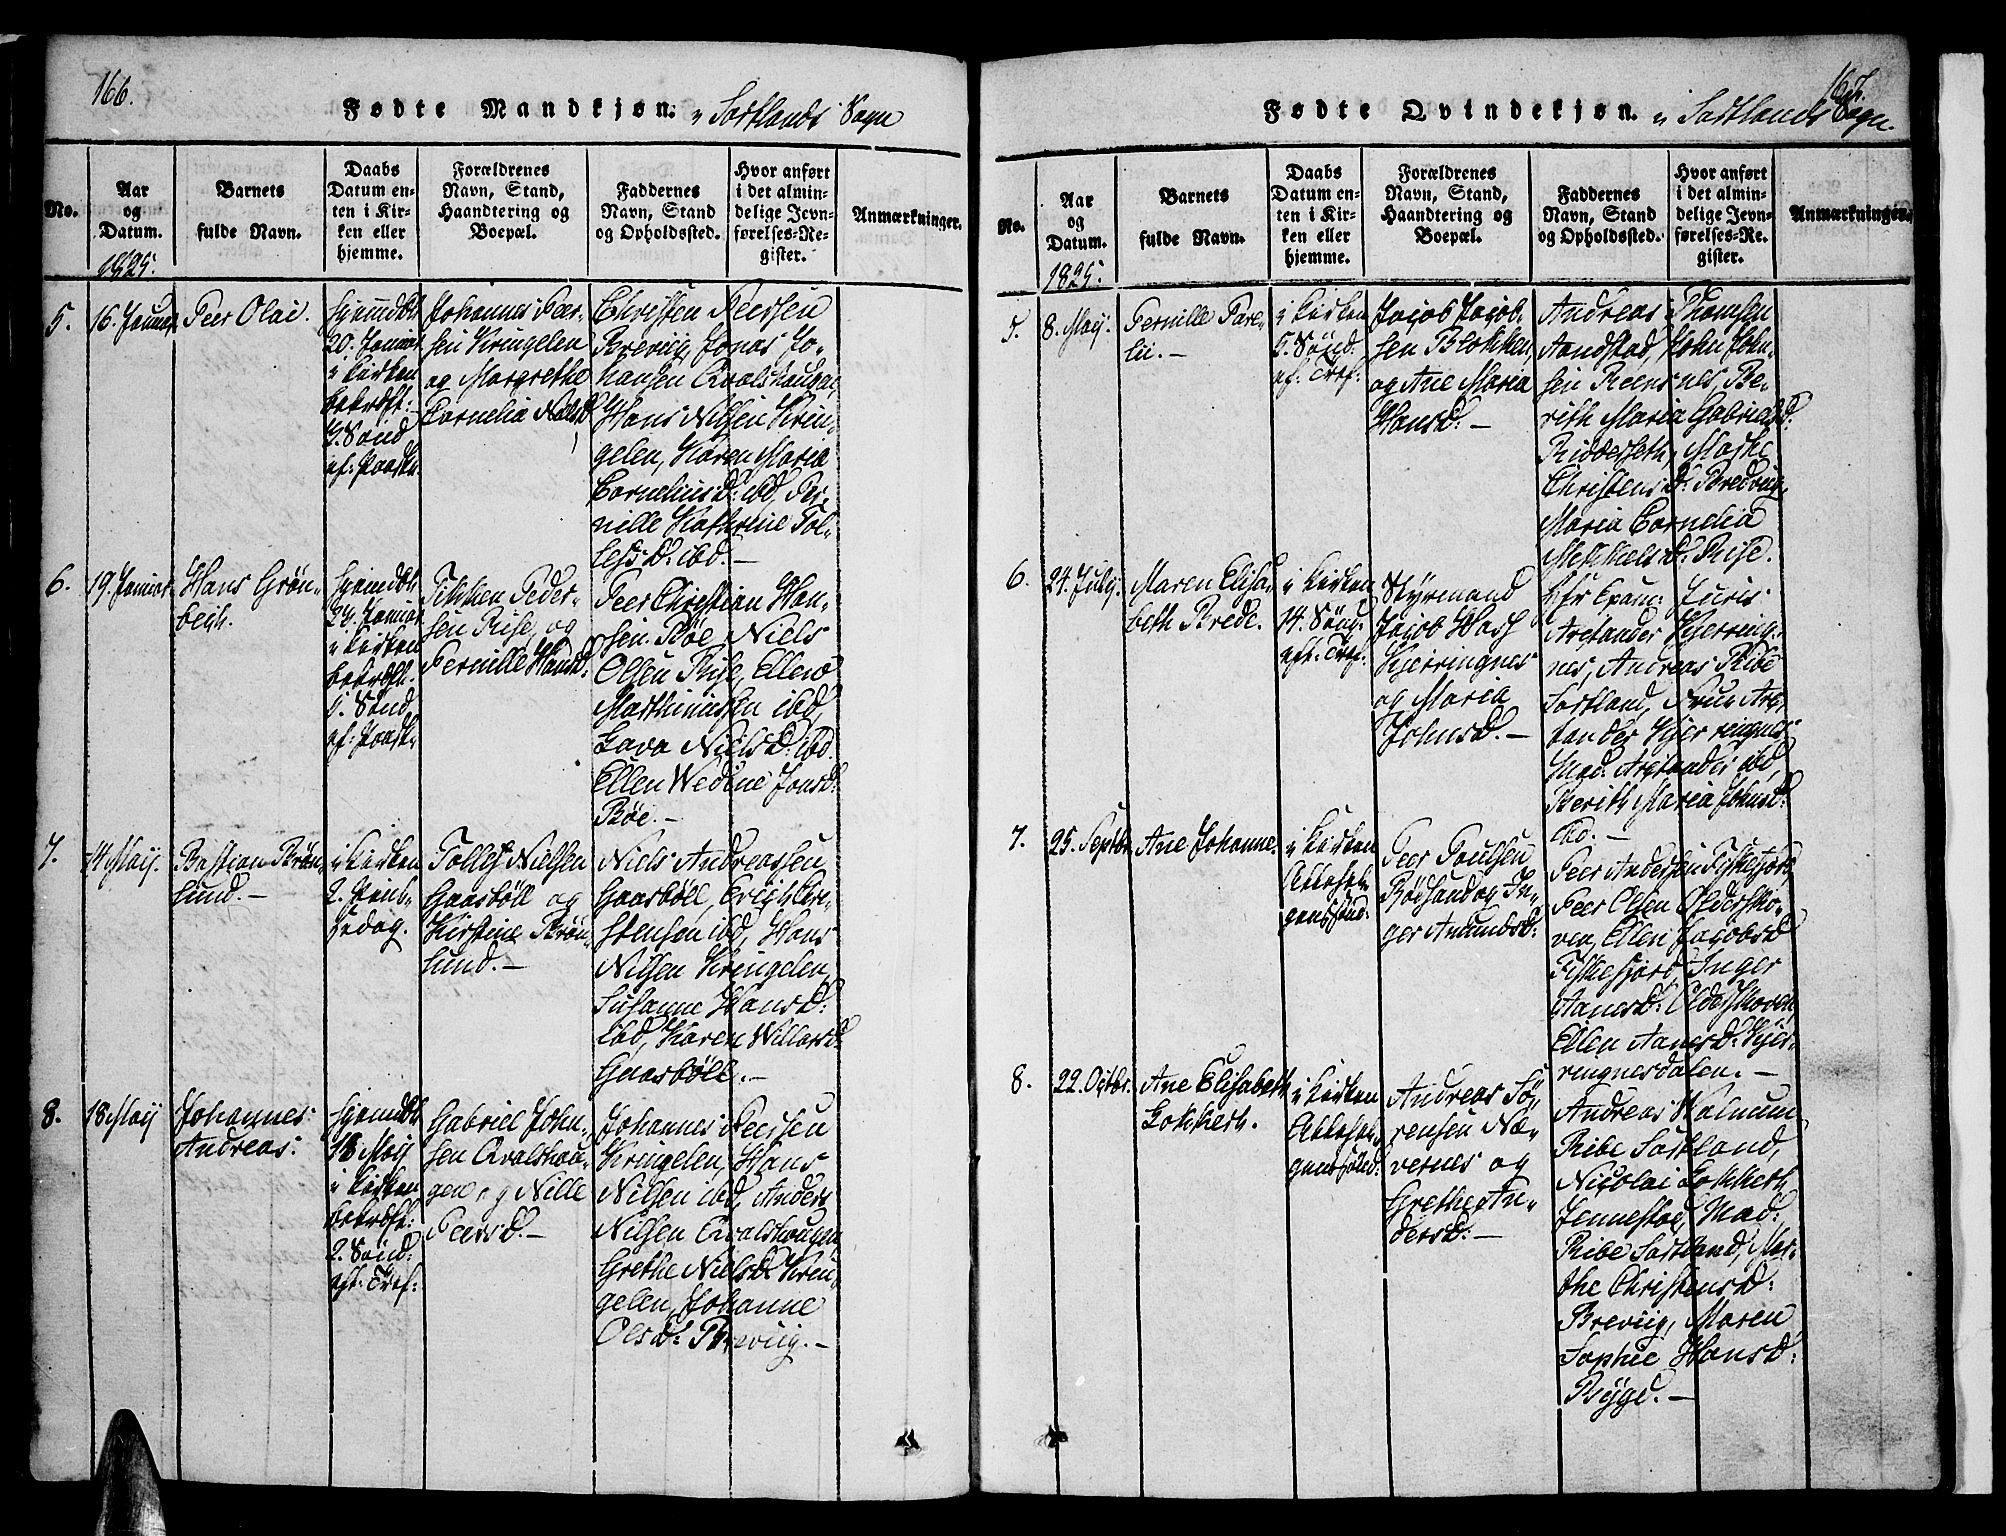 166.
Fødte Mandkjøn. i Sortlands Sogn
No.
Aar
og
Datum.
1825.
Barnets
fulde Navn.
Daabs
Datum en-
ten i Kir-
ken eller
hjemme.
Forældrenes
Navn, Stand,
Haandtering og
Boepæl.
Faddernes
Navn, Stand
og Opholdssted.
Hvor anført
i det almin-
delige Jevn-
førelses-Re-
gister.
Anmærkninger.
5.
16. Januar
Peer Olai.
hjemdøbt
20. Januar
i Kirken
bekræft:
3. Sønd
ef: Paaske
Johannes Peer-
sen Kringelen
og Margrethe
Cornelia Nielsd
Christen Peersen
Breviig, Jonas Jo-
hansen Qvalshaugen,
Hans Nilsen Krin-
gelen, Karen Maria
Cornelius D: ibd, Per-
nille Kathrine Tol-
lefs D: ibd. —
6.
19. Januar
Hans Grøn-
bech.
hjemdøbt
24. Januar
i Kirken
bekræft.
5. Sønd.
ef: Paask.
Peder-
sen Rise, og
Pernille Hansd:
Peer Christian Han-
sen Røe, Niels
Olsen Rise, Ellen
Mathinussen ibd,
Lava Niels D: ibd.
Ellen Wedine Jonsd:
Røe. —
7.
14 Maij.
Bastian Brøn-
lund. —
i Kirken
2. Pints-
dag.
Tollef Nielsen
Gaasbøll og
Kirstine Brøn-
lund. —
Niels Andreassen
Gaasbøll, Erich Chri-
stensen ibd, Hans
Nilsen Kringelen,
Susanne Hans D:
ibd, Karen Willarsd:
Gaasbøll. —
8.
18 Maij
Johannes
Andreas:
hjemdøbt
18 Maij
i Kirken
bekræft:
2. Sønd:
eft: Tref:
Gabriel John-
sen Qvalshau-
gen og Nille
Peers D. —
Johannes Peersen
Kringelen, Hans
Nilsen ibd, Anders
Nilsen Qvalshaugen,
Grethe Niels D Krin-
gelen, Johanne
Ols D: Breviig. —
167.
Fødte Qvindekjøn. i Sortlands Sogn.
No.
Aar
og
Datum.
1825.
Barnets
fulde Navn.
Daabs
Datum en-
ten i Kir-
ken eller
hjemme.
Forældrenes
Navn, Stand,
Haandtering og
Boepæl.
Faddernes
Navn, Stand
og Opholdssted.
Hvor anført
i det almin-
delige Jevn-
førelses-Re-
gister.
Anmærkninger.
5.
8. Maij.
Pernille Pare-
lii. —
i Kirken
5. Sønd:
ef: Tref:
Jacob Jacob-
sen Blokken
og Ane Maria
Hansd: —
Andreas Thomsen
Aandstad, John John-
sen Reensnes, Be-
rith Maria Gabriels D:
Ridderseth, Marthe
Christens D: Bredviig,
Maria Cornelia
Mekkels D: Rise.
6.
24. Julij.
Maren Elisa-
beth Brede.
i Kirken
14. Sønd.
eft: Tref:
Styrmand
Jacob Hass
Kjerringnes
og Maria
Johns D. —
Hr Exam: Juris:
Kjerring-
nes, Andreas Ribe
Sortland, Frue
Kjerringnes
Mad: ibd
Berith Maria Johns D:
ibd. —
7.
25. Septbr.
Ane Johanne.
i Kirken
Allehel-
gensSønd:
Peer Poulsen
Rødsand og In-
ger Amunds D:
Peer Andersen Fiskefjord,
Peer Olsen Oldersko-
ven, Ellen Jacobs D
Fiskefjord, Inger
Aanes D: Olderskoven,
Ellen Aanes D: Kjer-
ringnesdalen. —
8.
22. Octbr.
Ane Elisabeth
Lokkert.
i Kirken
Allehel-
gensSønd:
Andreas Sø-
rensen Næ-
versnes og
Grethe An-
ders D: —
Andreas Walnum
Ribe Sortland,
Nicolai Lokkert
Jennestad, Mad:
Ribe Sortland, Mar-
the Christens D:
Breviig, Maren
Sophie Hans D:
Bygd. —